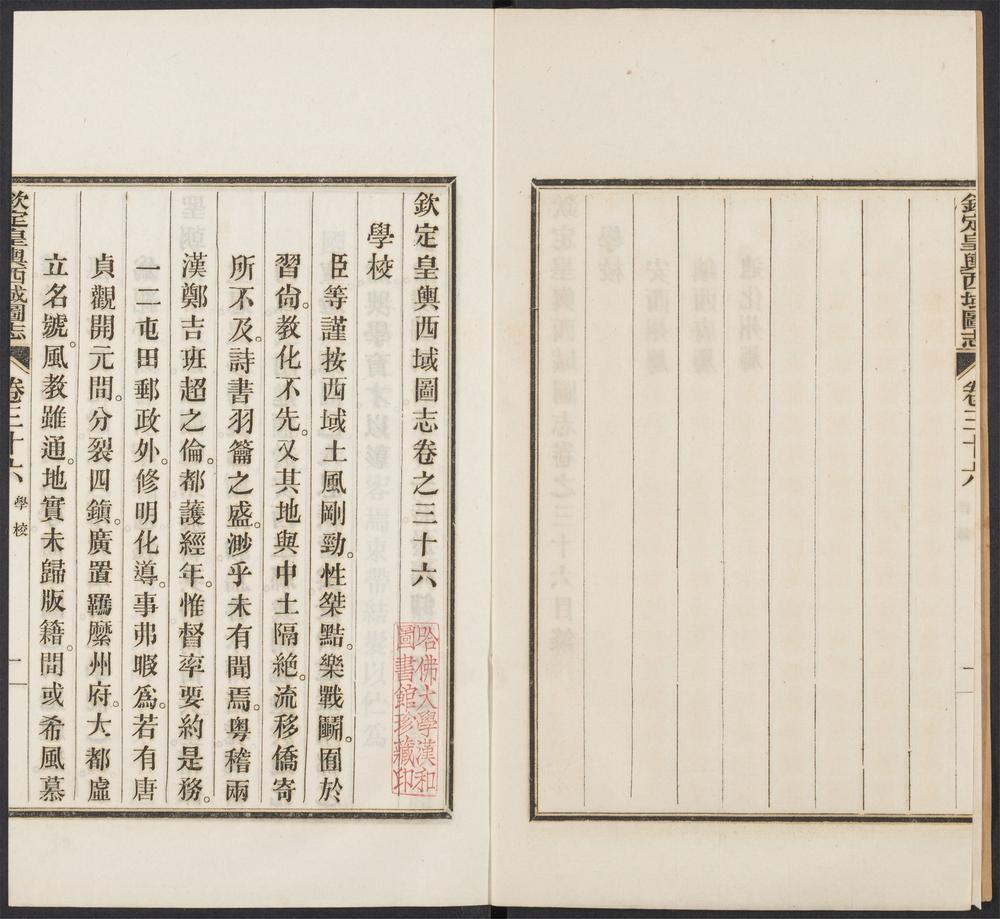 欽定皇輿西域圖志
卷三十六
欽定皇輿西域圖志卷之三十六
學校
臣等謹按西域土風剛勁。性桀黠。樂戰鬬。囿於
習尙。教化不先。又其地與中土隔絶。流移僑寄
所不及。詩書羽籥之盛。渺乎未有聞焉。粵稽兩
漢鄭吉班超之倫。都護經年。惟督率要約是務。
一二屯田郵政外。修明化導。事弗暇爲。若有唐
貞觀開元間。分裂四鎭。廣置羈縻州府。大都虛
立名號。風教雖通。地實未歸版籍。間或希風慕
欽定皇輿西域圖志
卷三十六
學校
一
哈佛大學漢和
圖書館珍藏印